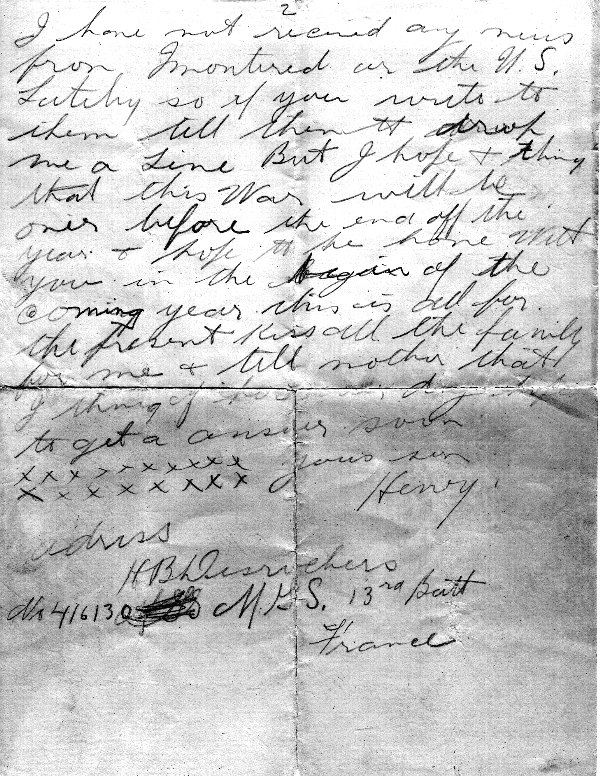 2
I have not recived any news
from Imontered or the U.S.
Lateby so if you write to
them tell them tt droop
me a Line But I hope & thing
that this War will be
over before the end off the
year & hope to be home Witt
you in the began of the
coming year this is all for
the present Kiss all the family
for me & tell mother that
I thing of her
to get a answer soon
x x x x x x x x x x yours son
x x x x x x x x x Henry.
adriss
H B Desrochers
No 416130 M.G.S. 13rd Batt
France